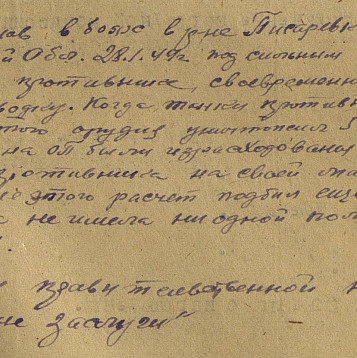 в боях в р-не Писаревк
й Обл. 28.1.44г под сильным
противника, своевременн
водку. Когда танки против
того орудия уничтожил 5
на ОП были израсходованы
противника на своей
этого расчет подбил ещё
не имела ни одной
правительственной н
заслуги"